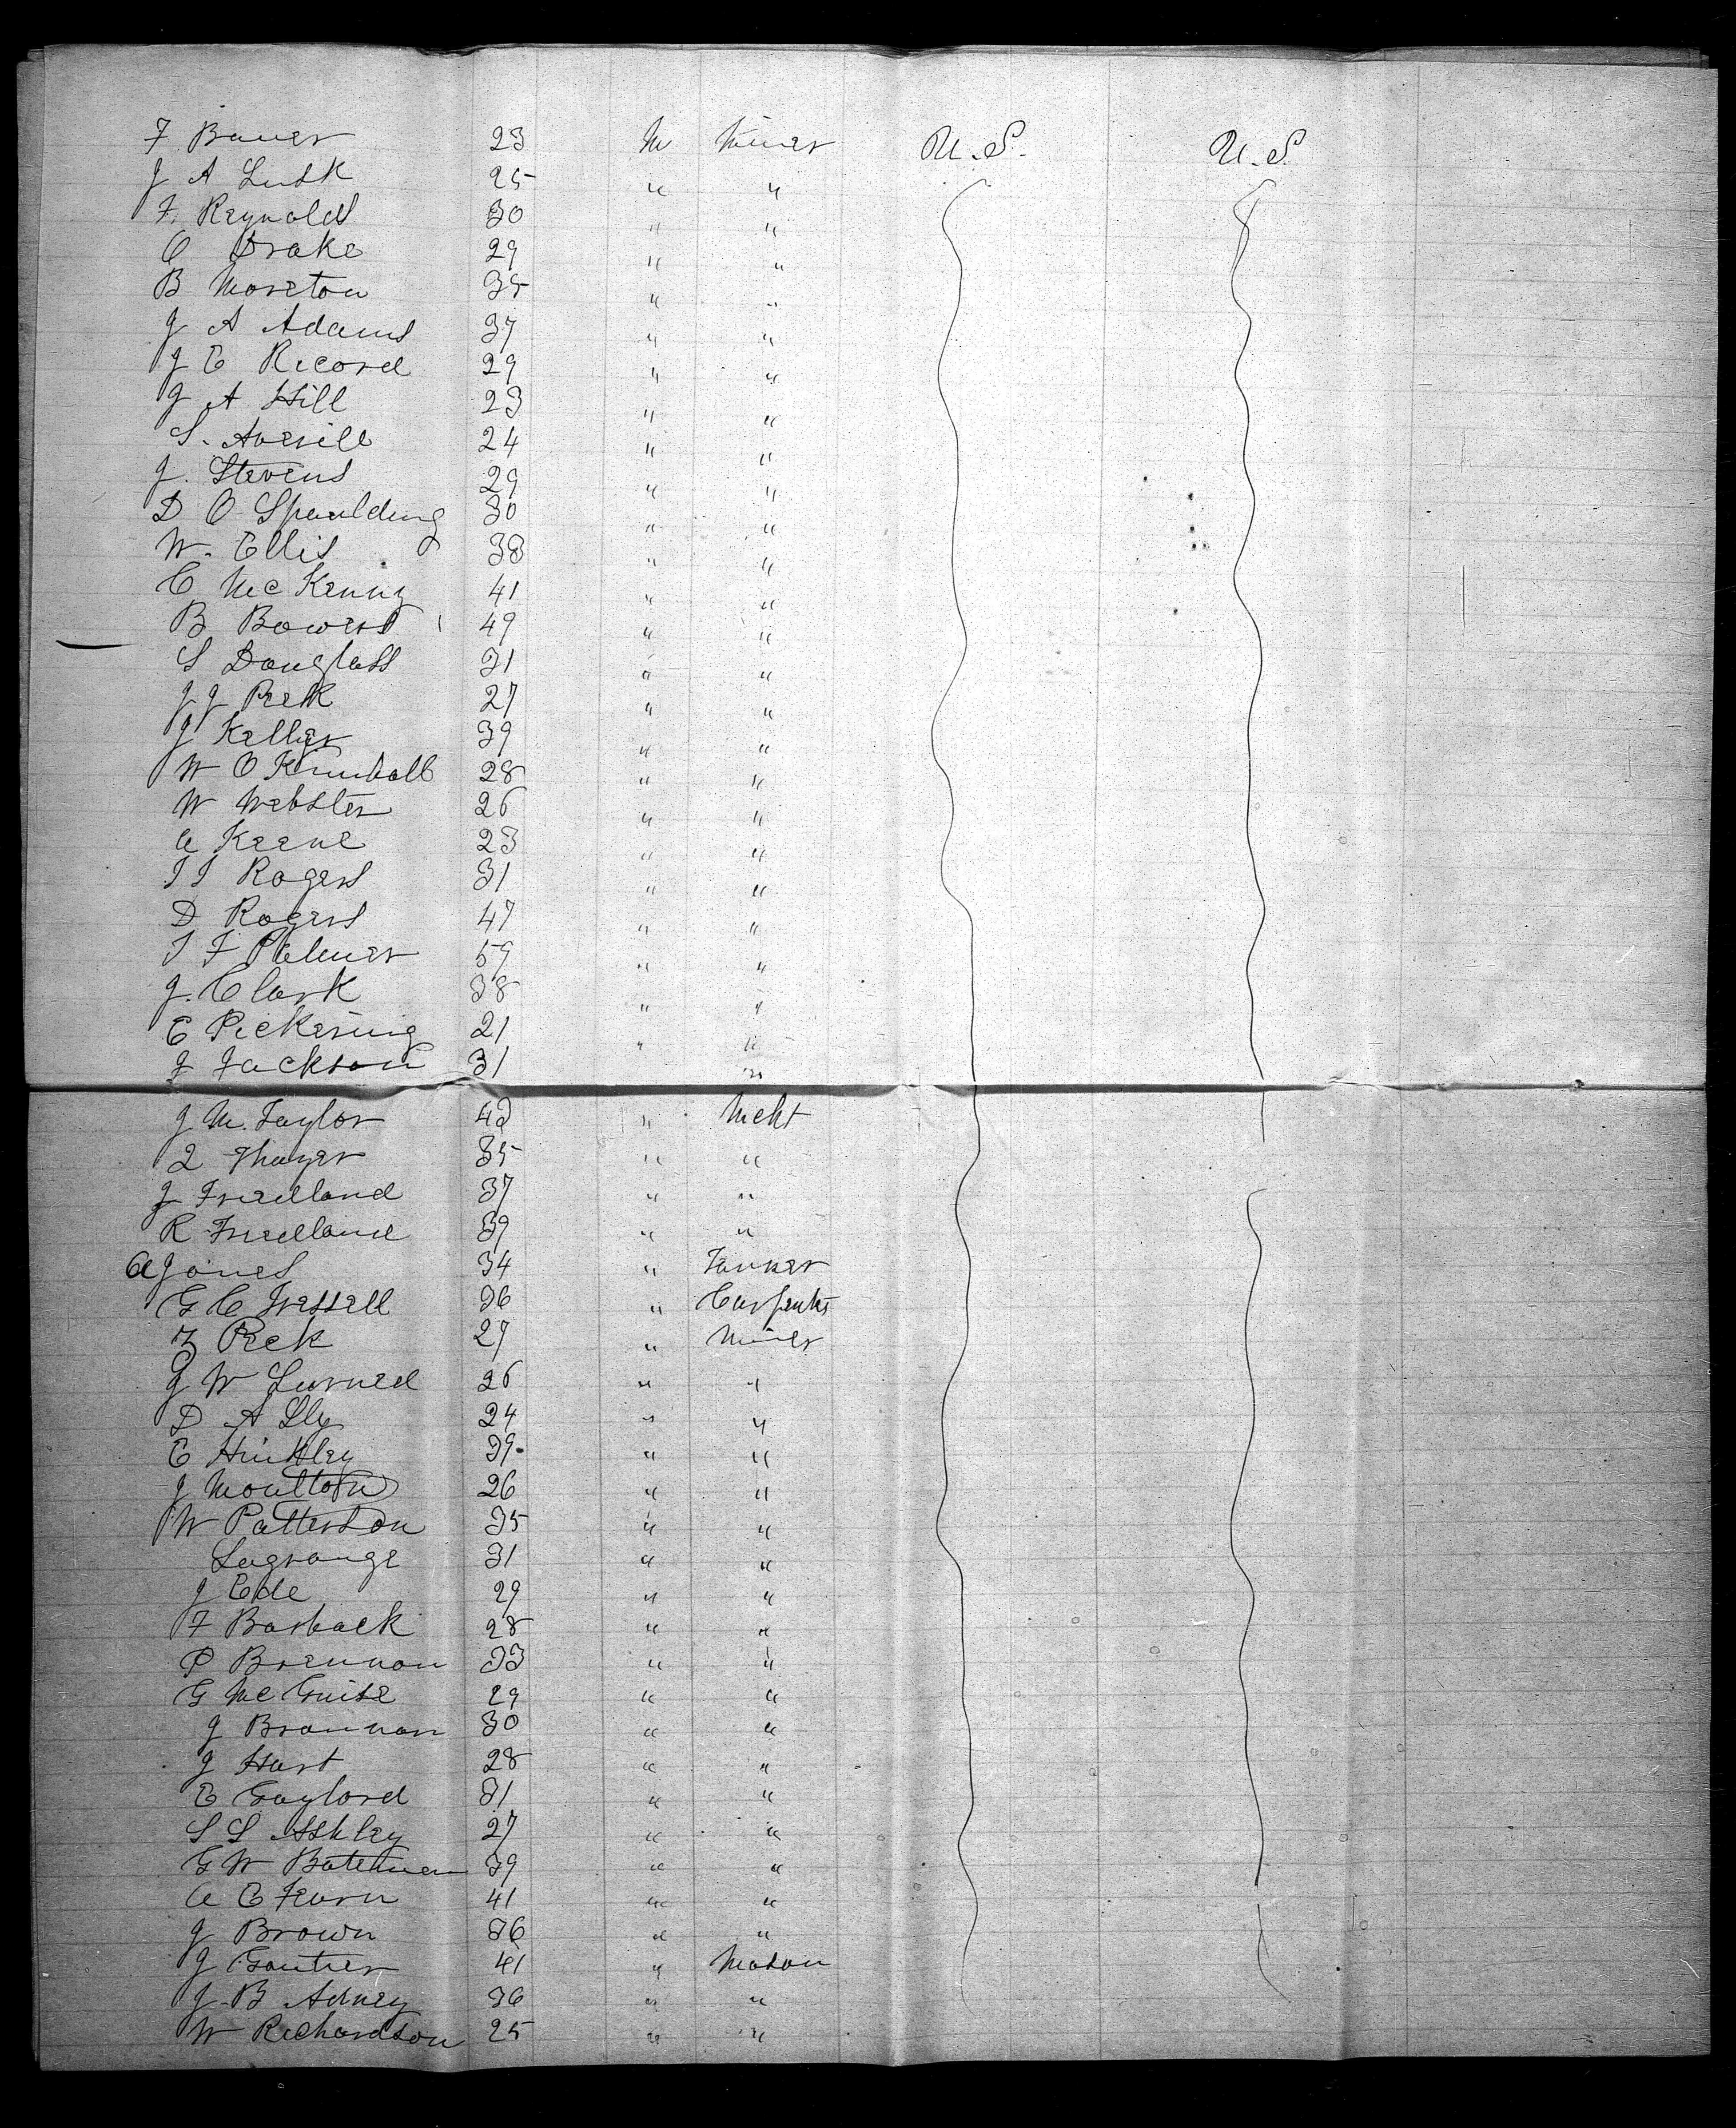 F Bauer 23 M Miner U.S. U.S.
J A Lusk 25 " "
F. Reynolds 30 " "
O Drake 29 " "
B Moreton 35 " "
J A Adams 37 " "
J E Record 29 " "
J A Hill 23 " "
S. Averill 24 " "
J. Stevens 29 " "
D O Spaulding 30 " "
W. Ellis 38 " "
C McKenny 41 " "
B Bowers 49 " "
S Douglass 31 " "
J J Peck 27 " "
J Kelley 39 " "
W O Kimball 28 " "
W Webster 26 " "
A Keene 23 " "
I I Rogers 31 " "
D Rogers 47 " "
I F Palmer 59 " "
J. Clark 38 " "
E Pickering 21 " "
J Jackson 31 " "
J M. Taylor 42 " Mcht
Q Thayer 35 " "
J Freelland 37 " "
R Freelland 39 " "
A Jones 34 " Tanner
G C Tressell 36 " Carpentr
Z Peck 27 " Miner
J W Lurned 26 " "
D A Lly 24 " "
E Hinkley 39 " "
J Moulton 26 " "
W Patterson 35 " "
Lagrange 31 " "
J Ede 29 " "
F Barback 28 " "
P Brennon 33 " "
G McGuise 29 " "
J Brannan 30 " "
J Hart 28 " "
E Gaylord 31 " "
S S Ashley 27 " "
G W Bateman 39 " "
A E Fearn 41 " "
J Brown 36 " "
J Gautier 41 " Mason
J B Adney 36 " "
W Richardson 25 " "